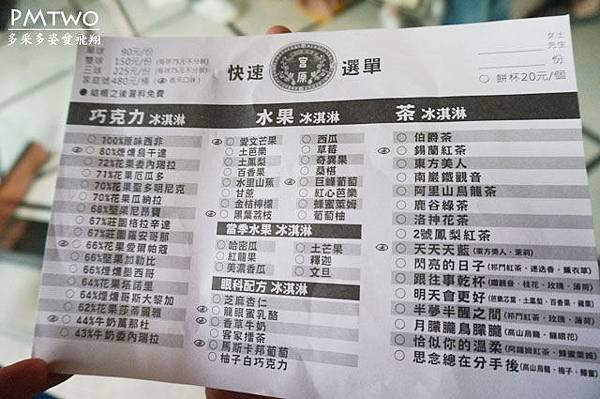 PMTWO
多采多姿愛飛翔
單球 90元/份
雙球 150元/份 (每球75元不分類)
三球 225元/份 (每球75元不分類)
家庭號480元/桶
結帳之後溫料免費
快速
宮原
選單
女士
先生
份
餅杯20元/個
巧克力 冰淇淋
100%原味西非
80%煙燻烏干達
72%花果委內瑞拉
71%花果厄瓜多
70%花果聖多明尼克
70%花果瓜納拉
68%堅果尼昂寶
67%莊園格拉辛達
67%莊園羅安哥那
66%花果愛爾帕蔻
66%堅果加勒比
66%煙燻墨西哥
64%花果塔諾里
64%煙燻哥斯大黎加
62%花果莎蒂麗雅
44%牛奶萬那杜
43%牛奶委內瑞拉
水果 冰淇淋
愛文芒果
土芭樂
土鳳梨
百香果
水里山蕉
甘蔗
金桔檸檬
黑葉荔枝
西瓜
草莓
奇異果
桑椹
巨峰葡萄
紅心芭樂
蜂蜜萊姆
葡萄柚
當季水果 冰淇淋
哈密瓜
紅龍果
美濃香瓜
土芒果
釋迦
文旦
眼科配方 冰淇淋
芝麻杏仁
龍眼蜜乳酪
香草牛奶
客家擂茶
馬斯卡邦葡萄
柚子白巧克力
茶 冰淇淋
伯爵茶
錫蘭紅茶
東方美人
南巖鐵觀音
阿里山烏龍茶
鹿谷綠茶
洛神花茶
2號鳳梨紅茶
天天天藍 (東方美人、茉莉)
閃亮的日子 (祁門紅茶、迷迭香、薰衣草)
跟往事乾杯 (鐵觀音、桂花、玫瑰、薄荷)
明天會更好 (芭樂芯葉、土鳳梨、百香果、蘋果)
半夢半醒之間 (祁門紅茶、玫瑰、薄荷)
月朦朧鳥朦朧 (高山烏龍、桂花)
恰似你的溫柔 (阿薩姆紅茶、蜂蜜萊姆)
思念總在分手後 (高山烏龍、梅子、蜂蜜)